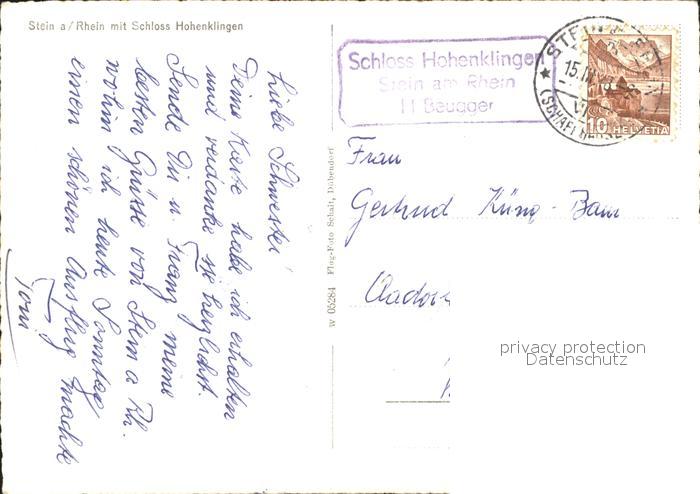 Stein a/Rhein mit Schloss Hohenklingen
Liebe Schwester!
Deine Karte habe ich erhalten
und verdanke sie herzlichst.
Sende Dir u. Franz meine
besten Grüsse von Stein a Rh.
wohin ich heute Sonntag
einen schönen Ausflug machte
Toni
W 05284 Flug-Foto Schait, Dübendorf
Schloss Hohenklingen
Stein am Rhein
H Beugger
STEIN
15.
(SCHAFFHAUSEN)
10 HELVETIA
Frau
Gertrud Küng-
privacy protection
Datenschutz